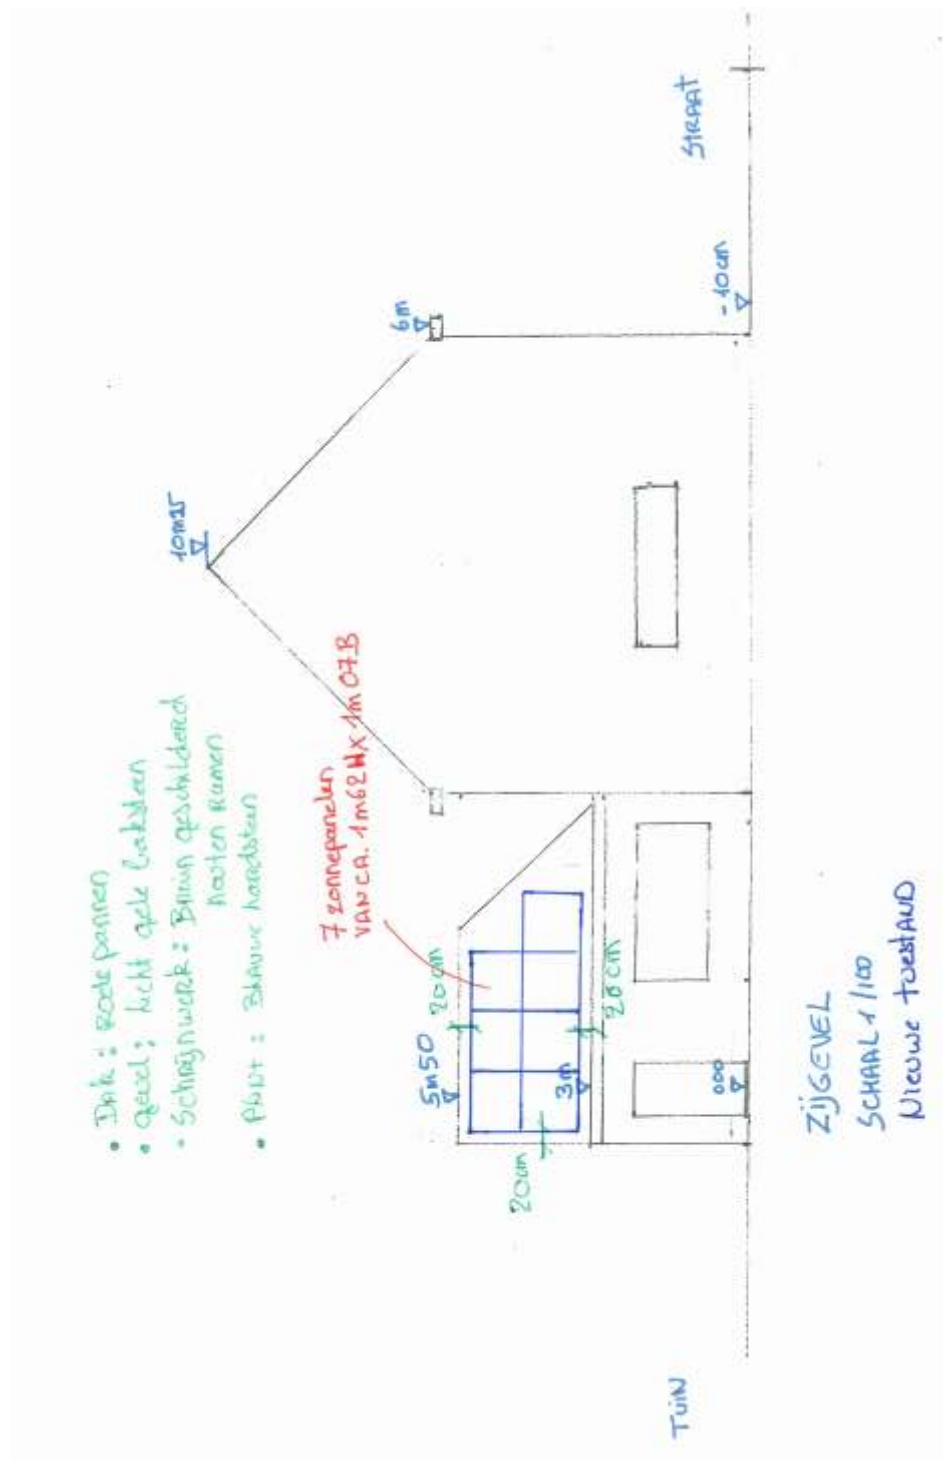 • Dak : Rode pannen
• gevel : licht gele baksteen
• Schrijnwerk : Bruin geschilderd
houten Ramen
• Plint : Blauwe hardsteen
10m25
7 zonnepanelen
VAN CA. 1m62 H X 1m 07B
6m
5m50
20cm
20cm
3m
20cm
000
-10cm
TUIN
STRAAT
ZIJGEVEL
SCHAAL 1/100
NIEUWE TOESTAND